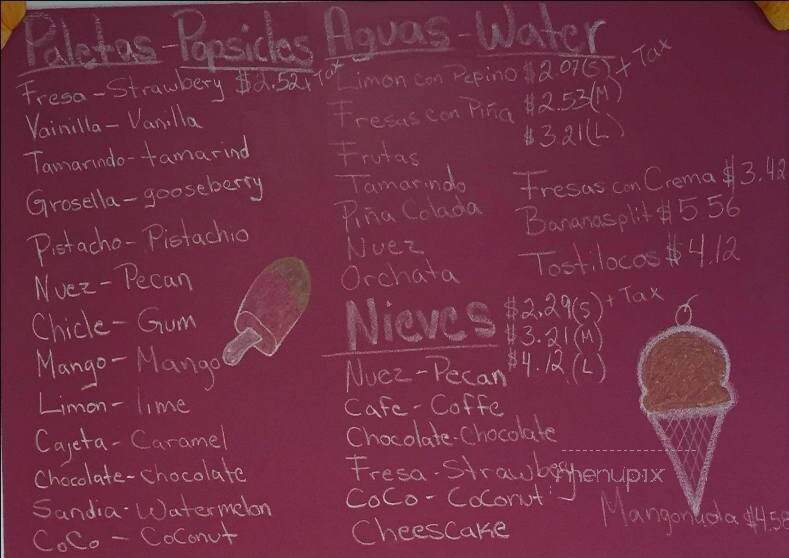 Paletas-Popsicles
Fresa-Strawbery $2.52+Tax
Vainilla-Vanilla
Tamarindo-tamarind
Grosella-gooseberry
Pistacho-Pistachio
Nuez-Pecan
Chicle-Gum
Mango-Mango
Limon-lime
Cajeta-Caramel
Chocolate-chocolate
Sandia-Watermelon
CoCo-CoConut
Aguas-Water
Limon con Pepino $2.07(S)+Tax
Fresas con Piña $2.53(M)
$3.21(L)
Frutas
Tamarindo
Piña Colada
Nuez
Orchata
Fresas con Crema $3.42
Bananasplit $5.56
Tostilocos $4.12
Nieves
$2.29(S)+Tax
$3.21(M)
$4.12(L)
Nuez-Pecan
Cafe-Coffe
Chocolate-Chocolate
Fresa-Strawbery
CoCo-Coconut
Cheescake
menupix
Mangonada $4.58